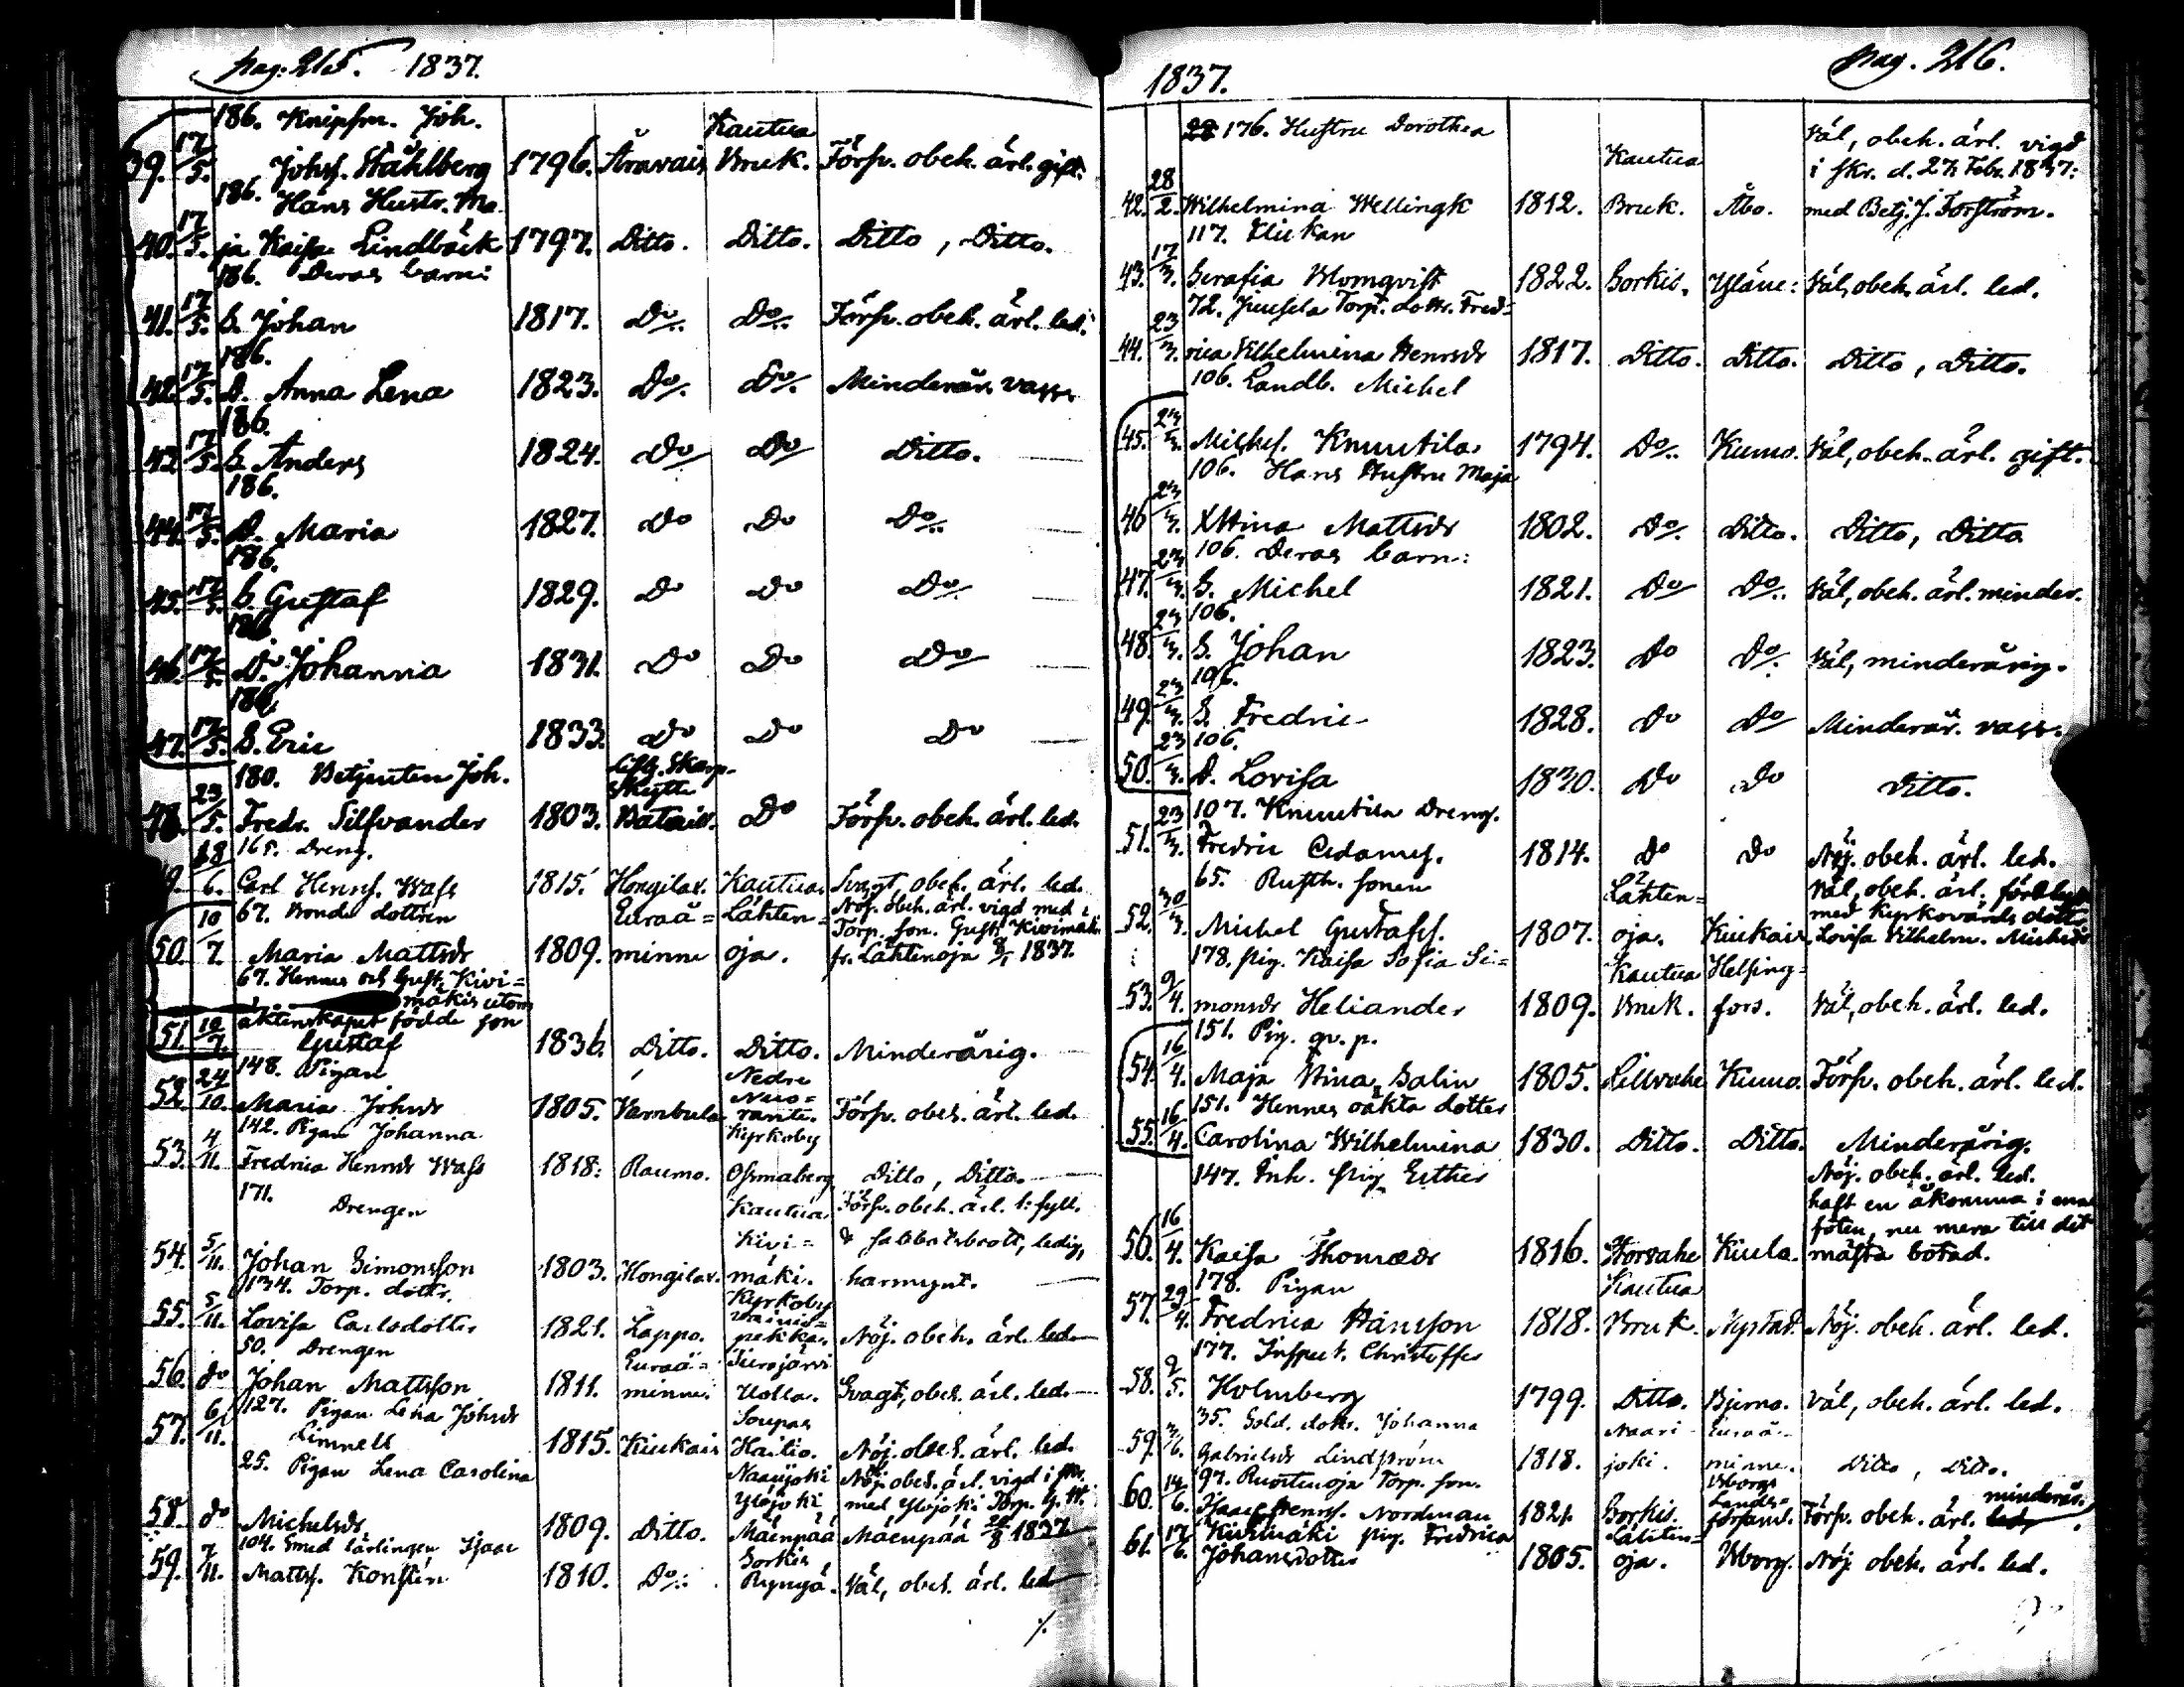 pag. 215. 1837.
186. Knipsm. Joh.
39. 17/5. Johs. Ståhlberg 1796. Åravais Kautua Bruk. Försv. obeh. ärl. gift.
186. Hans Hustr. Ma-
40. 17/5. ja Kaisa Lindbäck 1797. Ditto. Ditto. Ditto, Ditto.
186. Deras barn:
41. 17/5. S. Johan 1817. Do. Do. Försv. obeh. ärl. led.
186.
42. 17/5. D. Anna Lena 1823. Do. Do. Minderår. vacc.
186.
43. 17/5. S. Anders 1824. Do Do Ditto.
186.
44. 17/5. D. Maria 1827. Do Do Do.
186.
45. 17/5. S. Gustaf 1829. Do Do Do.
186.
46. 17/5. D. Johanna 1831. Do Do Do
186.
47. 17/5. S. Eric 1833. Do Do Do
180. Betjenten Joh.
48. 23/5. Fredr. Silfvander 1803. Skarp-
skytte Bataill. Do Försv. obeh. ärl. led.
165. Dreng.
49. 18/6. Carl Henrs. Wass 1815. Hongilax. Kautua. Svagt, obeh. ärl. led.
67. Bonde dottren Euraå= Lähten= Nöj. obeh. ärl. vigd med
Torp. son. Gust. Kivimäki
50. 10/7. Maria Mattsdr 1809. minne oja. fr. Lähtenoja 8/1 1837.
67. Hennes och Gust. Kivi=
mäkis utom
äktenskapet födde son
51. 10/7. Gustaf 1836. Ditto. Ditto. Minderårig.
148. Pigan Nedre
52. 24/10. Maria Johsdr 1805. Vambula Neuo=
ranta. Försv. obeh. ärl. led.
142. Pigan Johanna Kyrkoby
53. 4/11. Fredrica Henrsdr Wass 1818. Raumo. Ohmaberg Ditto, Ditto.
171. Drengen Kautua Försv. obeh. ärl. 1: fyll.
Kivi= & sabbatsbrott, ledig,
54. 5/11. Johan Simonsson 1803. Hongilax. mäki. harmynt.
134. Torp. dottr. Kyrkoby
55. 5/11. Lovisa Carlsdotter 1821. Lappo. pekka. Nöj. obeh. ärl. led.
50. Drengen Euraå= Turajärvi
56. do Johan Mattsson 1811. minne. Uotla. Svagt, obeh. ärl. led.
127. Pigan Lena Johsdr
57. 6/11. Limnell 1815. Kiukais Soupas Hailio. Nöj. obeh. ärl. led.
25. Pigan Lena Carolina Naarijoki Nöj. obeh. ärl. vigd i
Ylojoki med Ylojoki Torp.
58. do Michelsdr 1809. Ditto. Mäenpää Mäenpää 20/8 1837
104. Smed lärlingen Isaac Sorkis
59. 7/11. Matts. Konstén 1810. Do. Väl, obeh. ärl. led.
1837. pag. 216.
176. Hustru Dorothea Väl, obeh. ärl. vigd
Kautua i skr. d. 27 Febr. 1837.
42. 28/2. Wilhelmina Wellingk 1812. Bruk. Åbo. med Betj. J. Forström.
117. Flickan
43. 17/3. Serafia Blomqvist 1822. Sorkis. Yläne. Väl, obeh. ärl. led.
72. Juusela Torp. dottr. Fred=
44. 23/3. rica Vilhelmina Henrsdr 1817. Ditto. Ditto. Ditto, Ditto.
106. Landb. Michel
45. 23/3. Michels. Knuutila 1794. Do. Kumo. Väl, obeh. ärl. gift.
106. Hans Hustru Maja
46. 23/3. Stina Mattsdr 1802. Do. Ditto. Ditto, Ditto
106. Deras barn:
47. 23/3. S. Michel 1821. Do Do. Väl, obeh. ärl. minder.
106.
48. 23/3. S. Johan 1823. Do Do. Väl, minderårig.
106.
49. 23/3. S. Fredric 1828. Do Do Minderår. vacc.
106.
50. 23/3. D. Lovisa 1830. Do Do Ditto.
107. Knuutila Dreng.
51. 23/3. Fredric Adams. 1814. Do Do Nöj. obeh. ärl. led.
65. Rusth. sonen Lähten= Väl, obeh. ärl.
med Kyrkovärds dottr.
52. 30/3. Michel Gustafs. 1807. oja. Kiukais Lovisa Vilhelm. Michelsdr
178. pig. Kaisa Sofia Si= Kautua Helsing=
53. 9/4. monsdr Heliander 1809. Bruk. fors. Väl, obeh. ärl. led.
151. Pig. qv. p.
54. 16/4. Maja Stina Salin 1805. Lillvahe Kumo. Försv. obeh. ärl. led.
151. Hennes oäkta dotter
55. 16/4. Carolina Wilhelmina 1830. Ditto. Ditto. Minderårig.
147. Inh. pig. Esther Nöj. obeh. ärl. led.
haft en åkomma i ena
foten, nu mera till det
56. 16/4. Kaisa Thomasdr 1816. Storvahe Kiula. mästa botad.
178. Pigan Kautua
57. 29/4. Fredrica Hansson 1818. Bruk. Nystad. Nöj. obeh. ärl. led.
177. Inspect. Christoffer
58. 2/5. Holmberg 1799. Ditto. Bjerno. Väl, obeh. ärl. led.
35. Sold. dottr. Johanna Naari- Euraå-
59. 3/6. Gabrielsdr Lindström 1818. joki. minne. Ditto, Ditto.
97. Ruottenoja Torp. son. Wborgs
Lands= minderår.
60. 14/6. Isaac Henrs. Nordman 1821. Sorkis. församl. Försv. obeh. ärl. led.
Kivimäki pig. Fredrica Lähten=
61. 17/6. Johansdotter 1805. oja. Wborg. Nöj. obeh. ärl. led.